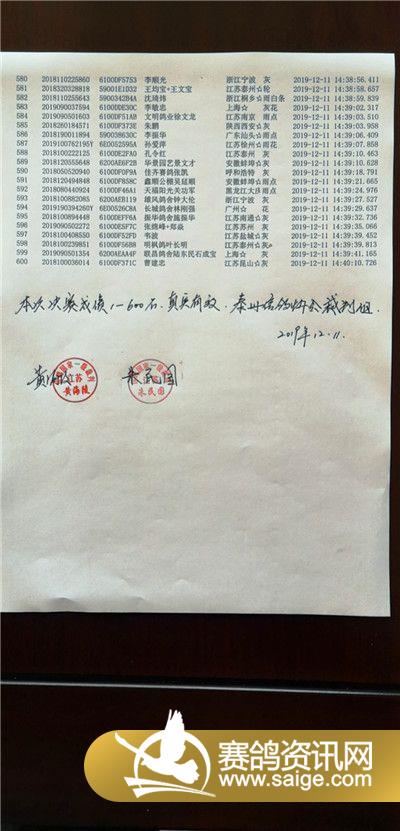 580 2018110225860 6100DF5753 李顺光 浙江宁波 灰 2019-12-11 14:38:56.411
581 2018320328818 59001E1D32 王均宝+王文宝 江苏泰州☆轮 2019-12-11 14:38:58.657
582 2018110255643 5900342B4A 沈琦炜 浙江桐乡☆雨白条 2019-12-11 14:38:59.839
583 2019090037594 6100DDE30C 李敏忠 上海☆ 灰花 2019-12-11 14:39:02.317
584 2019090501603 6100DF51AB 文明鸽业徐文龙 江苏南京 雨点 2019-12-11 14:39:03.031
585 2018260184571 6100DF373E 朱鹏 陕西西安☆灰 2019-12-11 14:39:03.958
586 2018190011894 59003C0BDF 李振华 广东汕头☆雨点 2019-12-11 14:39:06.409
587 20191007621 6E0052595A 孙爱萍 江苏徐州☆雨花 2019-12-11 14:39:07.858
588 2018100222125 6100DE2FA0 孔令红 江苏泰州 灰 2019-12-11 14:39:10.463
589 2018120555648 6200AD6EF2B 华景园艺景文才 安徽蚌埠☆灰 2019-12-11 14:39:10.628
590 2018050520940 佳齐赛鸽张凯 呼和浩特 灰 2019-12-11 14:39:18.791
591 2018120494848 6100DF858C 鼎顺公棚吴延顺 安徽蚌埠☆雨点 2019-12-11 14:39:21.665
592 2018080440924 6100DF46A1 天禧阳光关功军 雨点 2019-12-11 14:39:24.652
593 2018100882083 6200AEB119 雄风鸽舍钟大伦 浙江宁波 灰 2019-12-11 14:39:27.527
594 6E00526C8A 长城鸽舍林刚强 广州☆ 花 2019-12-11 14:39:29.637
595 2018100894448 6100DEF7F6 振华鸽舍施振华 江苏南通☆灰 2019-12-11 14:39:32.536
596 2019090502272 6100DE5F7C 张绵峰+郑焱 江苏苏州 灰 2019-12-11 14:39:35.266
597 2018100408550 6100DF52FD 韦波 江苏盐城☆灰 2019-12-11 14:39:39.452
598 2018100239851 6100DF56BB 明枫鸽叶长明 江苏泰州☆灰 2019-12-11 14:39:39.813
599 2019090501653 6200AEAA4F 联昌鸽舍陆东民石成宝 上海☆ 灰 2019-12-11 14:39:41.883
600 2018100036014 6100DF371C 曹建忠 江苏昆山☆灰 2019-12-11 14:40:10.726
本次决赛成绩1-600名.真实有效.泰州信鸽协会裁判组.
2019年12.11.
黄海陵 国家一级裁判 江苏 黄海陵
朱民国 国家一级裁判 朱民国
赛鸽资讯网
www.saige.com